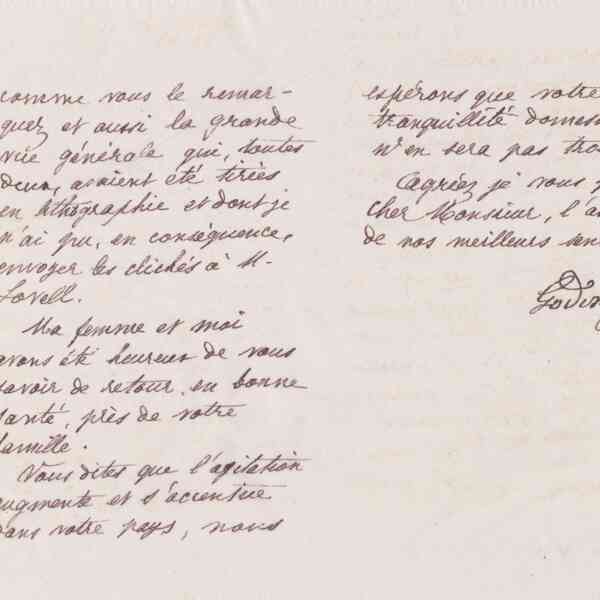 comme vous le remar-
quez et aussi la grande
vue générale qui, toutes
deux, avaient été tirées
en lithographie et dont je
n'ai pu, en conséquence,
envoyer les clichés à M.
Lovell.
Ma femme et moi
avons été heureux de vous
savoir de retour, en bonne
santé, près de votre
famille.
Vous dites que l'agitation
augmente et s'accentue
dans votre pays, nous
espérons que votre
tranquillité domes
n'en sera pas tro
Agréez je vous p
cher Monsieur, l'a
de nos meilleurs sen
Godin